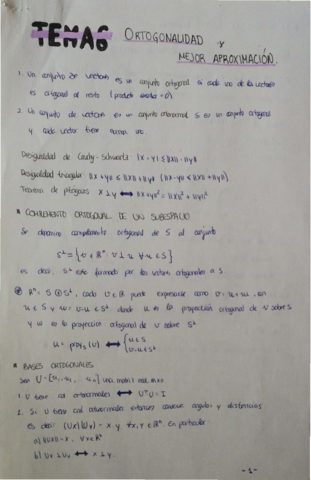 TEMA6 ORTOGONALIDAD y
MEJOR APROXIMACIÓN.
1. Un conjunto de vectores es un conjunto ortogonal si cada uno de los vectores
es ortogonal al resto (producto = 0).
2. Un conjunto de vectores es un conjunto ortonormal si es un conjunto ortogonal
y cada vector tiene norma uno.
Desigualdad de Cauchy-Schwartz |x·y| ≤ ||x||·||y||
Desigualdad triangular ||x+y|| ≤ ||x||+||y|| (||x-y|| ≤ ||x||+||y||)
Teorema de pitágoras x⊥y ⟷ ||x+y||² = ||x||² + ||y||²
COMPLEMENTO ORTOGONAL DE UN SUBESPACIO
Se denomina complemento ortogonal de S al conjunto
S⊥ = {v ∈ Rⁿ : v⊥u ∀u∈S}
es decir, S⊥ está formado por los vectores ortogonales a S.
Rⁿ = S⊕S⊥, cada v∈Rⁿ puede expresarse como v = u+w, con
u∈S y w = v-u ∈ S⊥ donde u es la proyección ortogonal de v sobre S
y w es la proyección ortogonal de v sobre S⊥
u = proyₛ(v) ⟷ { u∈S
v-u∈S⊥
BASES ORTOGONALES
Sea U = [u₁...uₙ] una matriz real mxn
1. U tiene col ortonormales ⟷ UᵀU = I
2. Si U tiene col ortonormales entonces conserva ángulos y distancias
es decir (Ux)(Uy) = x·y ∀x,y∈Rⁿ. En particular:
a) ||Ux|| = x, ∀x∈Rⁿ
b) Ux⊥Uy ⟷ x⊥y.
-1-